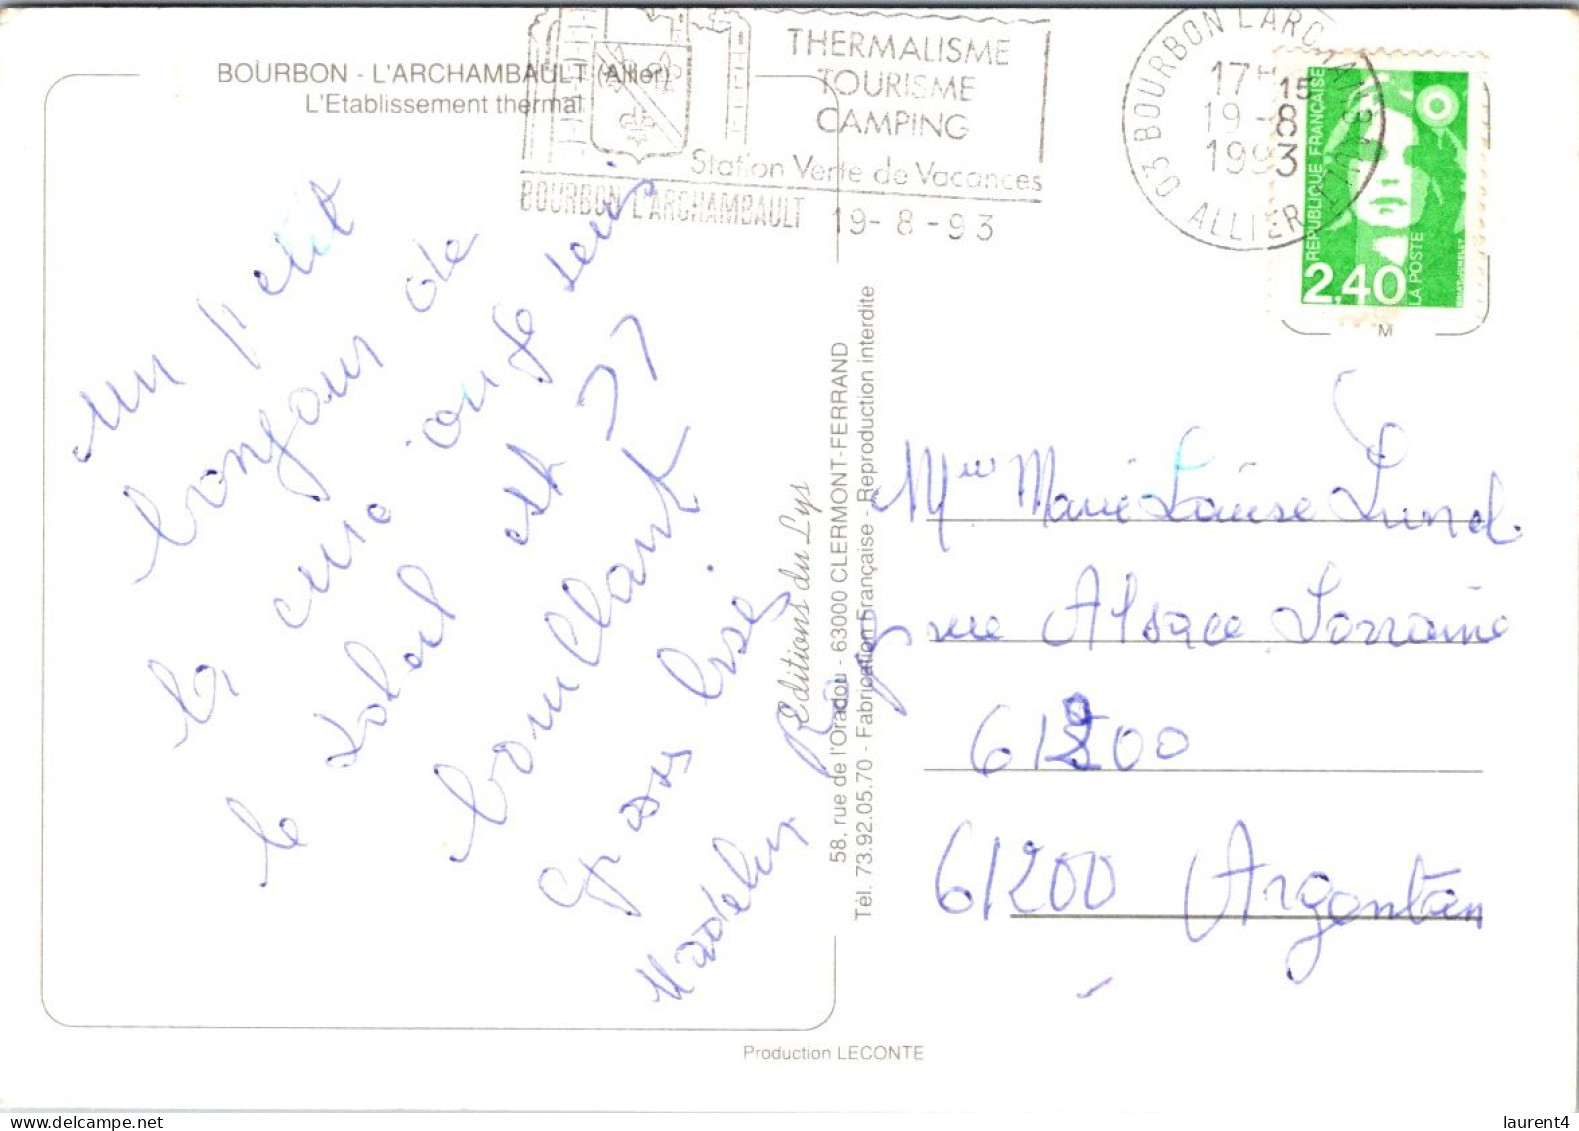 BOURBON - L'ARCHAMBAULT (Allier)
L'Etablissement thermal
THERMALISME
TOURISME
CAMPING
Station Verte de Vacances
BOURBON L'ARCHAMBAULT
19-8-93
03 BOURBON L'ARCHAMBAULT
17H15
19-8
1993
ALLIER
RÉPUBLIQUE FRANÇAISE
2,40
LA POSTE
M
un petit
bonjour de
la cure
le soleil est
bouillant
gros bisés
Madeleine
Editions du Lys
58, rue de l'Oradou - 63000 CLERMONT-FERRAND
Tél. 73.92.05.70 - Fabrication Française - Reproduction interdite
Mme Marie Louise Lunel.
rue Alsace Lorraine
61200
61200 Argentan
Production LECONTE
laurent4